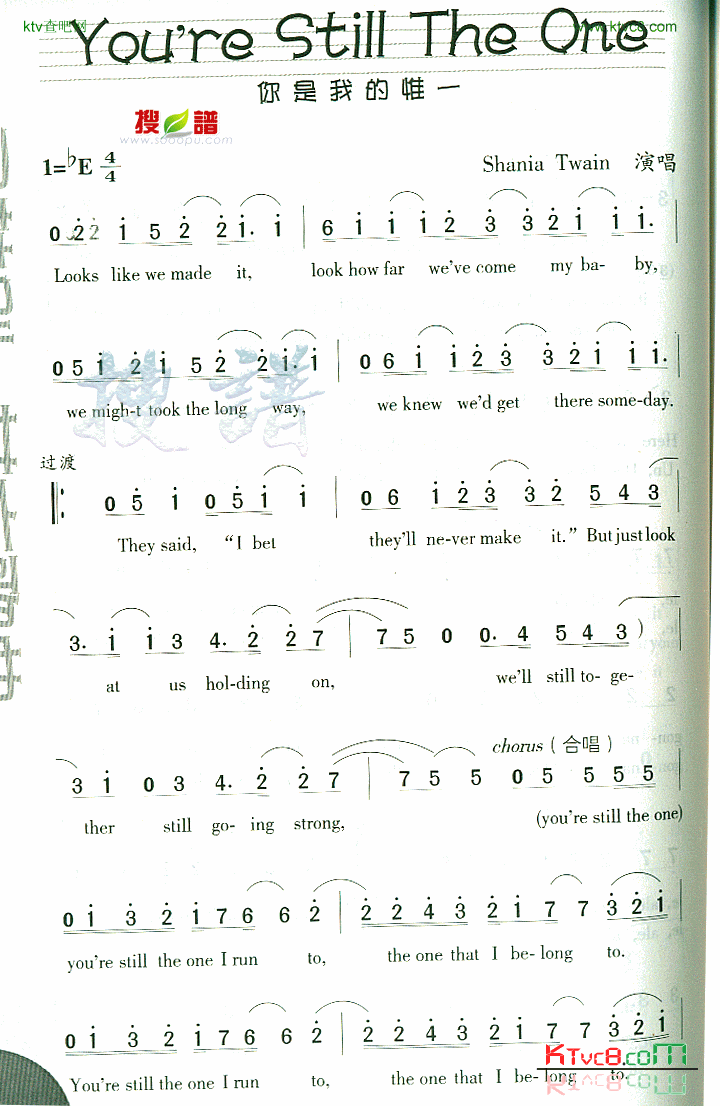 ktv查吧网
www.ktvc8.com
You're Still The One
你是我的惟一
搜谱
www.sooopu.com
1=♭E 4/4
Shania Twain 演唱
0 2 2 1 5 2 2 1. 1 | 6 1 1 1 2 3 3 2 1 1 1. |
Looks like we made it, look how far we've come my ba- by,
0 5 1 2 1 5 2 2 1. 1 | 0 6 1 1 2 3 3 2 1 1 1. |
we migh-t took the long way, we knew we'd get there some-day.
搜譜
过渡
0 5 1 0 5 1 1 | 0 6 1 2 3 3 2 5 4 3 |
They said, “I bet they'll ne-ver make it.” But just look
3. 1 1 3 4. 2 2 7 | 7 5 0 0. 4 5 4 3 )
at us hol-ding on, we'll still to- ge-
chorus (合唱)
3 1 0 3 4. 2 2 7 | 7 5 5 0 5 5 5 5
ther still go- ing strong, (you're still the one)
0 1 3 2 1 7 6 6 2 | 2 2 4 3 2 1 7 7 3 2 1 |
you're still the one I run to, the one that I be- long to.
0 1 3 2 1 7 6 6 2 | 2 2 4 3 2 1 7 7 3 2 1
You're still the one I run to, the one that I be- long to.
KTvc8.com